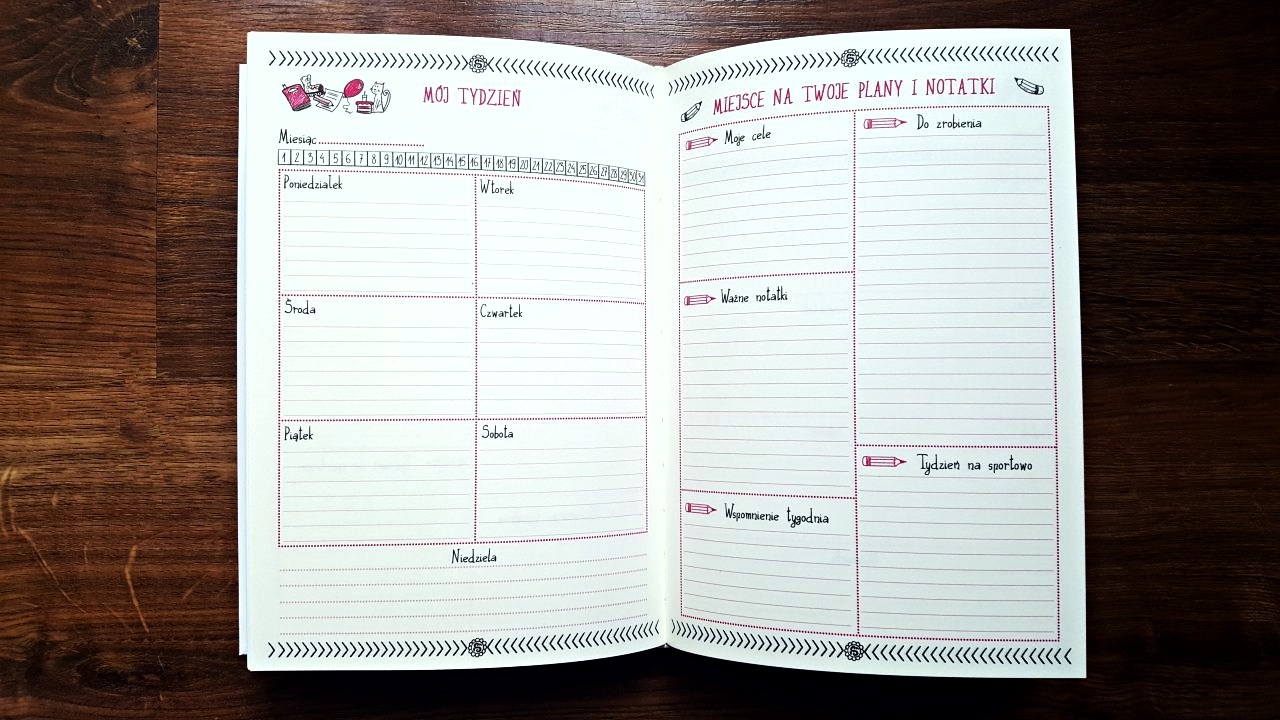 MÓJ TYDZIEŃ
Miesiąc
1 2 3 4 5 6 7 8 9 10 11 12 13 14 15 16 17 18 19 20 21 22 23 24 25 26 27 28 29 30 31
Poniedziałek
Wtorek
Środa
Czwartek
Piątek
Sobota
Niedziela
MIEJSCE NA TWOJE PLANY I NOTATKI
Moje cele
Do zrobienia
Ważne notatki
Tydzień na sportowo
Wspomnienie tygodnia